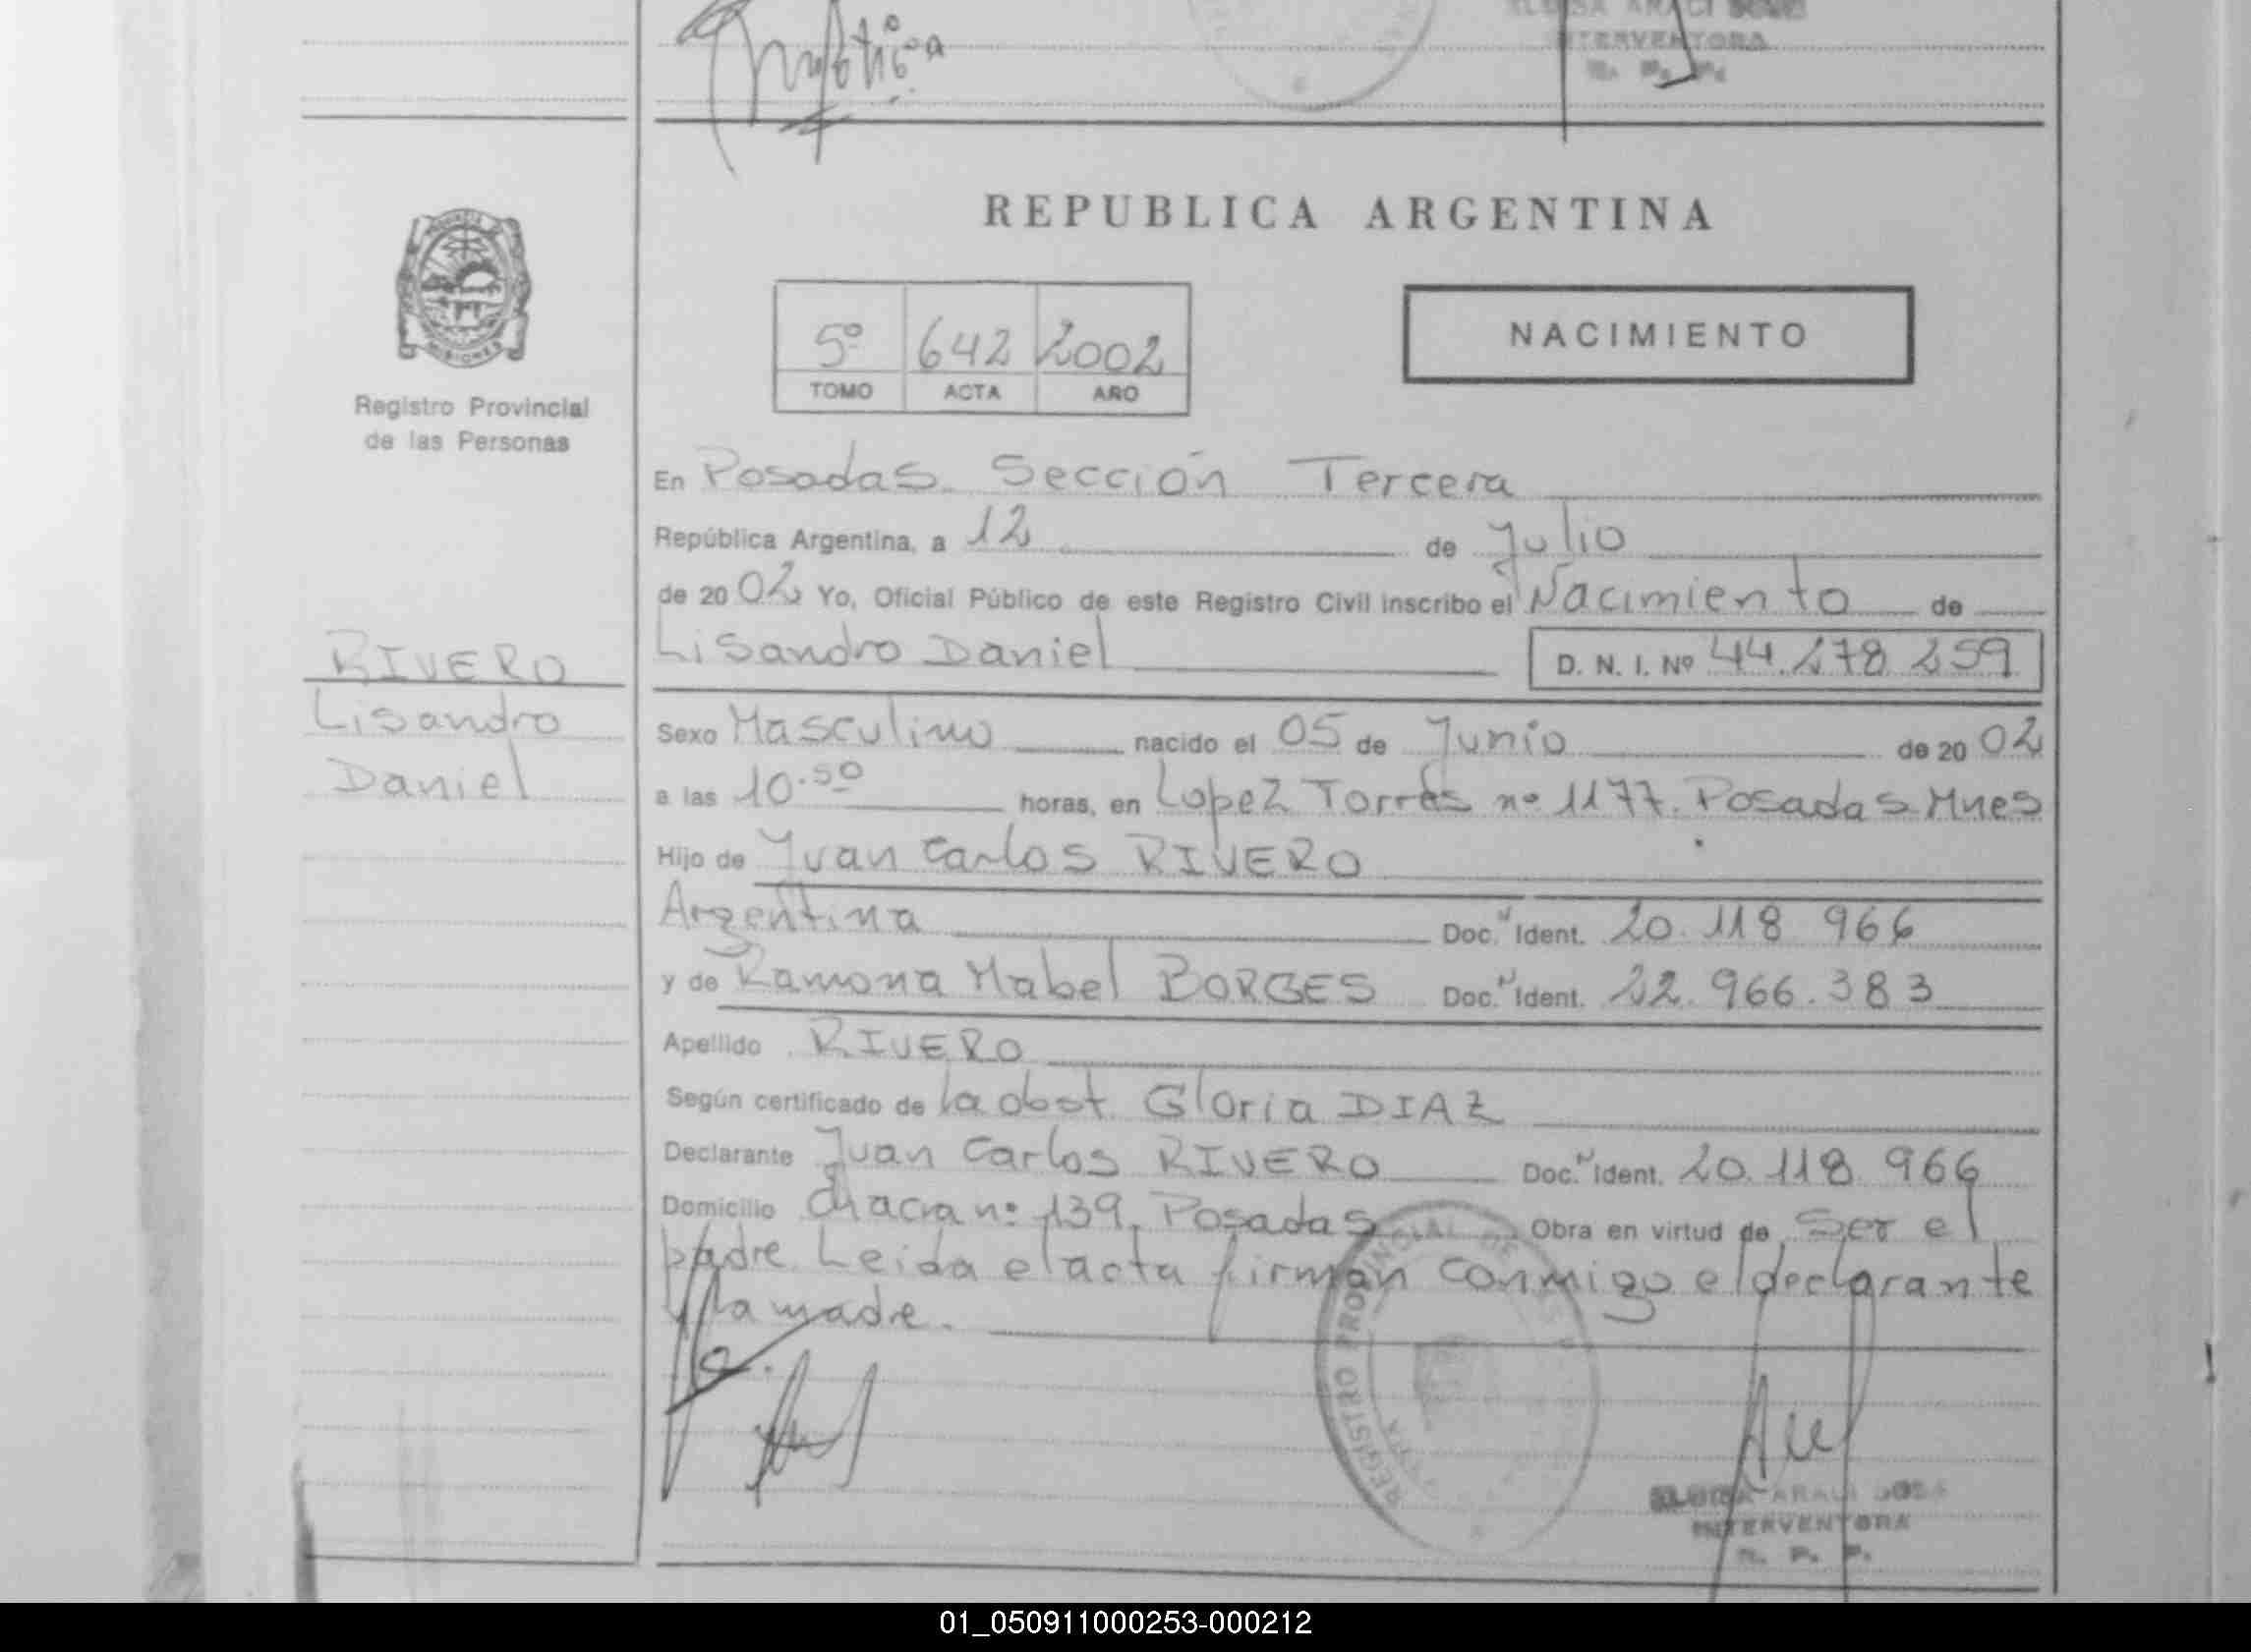 INTERVENTORA
REPUBLICA ARGENTINA
5º 642 2002
TOMO ACTA AÑO
NACIMIENTO
MISIONES
Registro Provincial
de las Personas
En Posadas Sección Tercera
República Argentina, a 12 de Julio
de 2002 Yo, Oficial Público de este Registro Civil inscribo el Nacimiento de
Lisandro Daniel D. N. I. Nº 44.278.259
RIVERO
Lisandro
Daniel
Sexo Masculino nacido el 05 de Junio de 2002
a las 10.50 horas, en Lopez Torres nº 1177. Posadas Mnes
Hijo de Juan Carlos RIVERO
Argentina Doc. Ident. 20.118.966
y de Ramona Mabel BORGES Doc. Ident. 22.966.383
Apellido RIVERO
Según certificado de la obst. Gloria DIAZ
Declarante Juan Carlos RIVERO Doc. Ident. 20.118.966
Domicilio Chacra nº 139. Posadas Obra en virtud de Ser el
padre. Leida el acta firman conmigo el declarante
y la madre.
REGISTRO PROVINCIAL DE
INTERVENTORA
R. P. P.
01_050911000253-000212